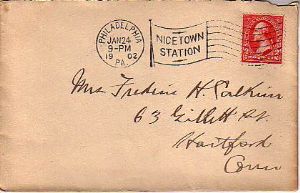 PHILADELPHIA
JAN 24
9-PM
19 02
PA.
NICETOWN
STATION
Mrs. Frederic H.
63 Gillett St.
Hartford
Conn